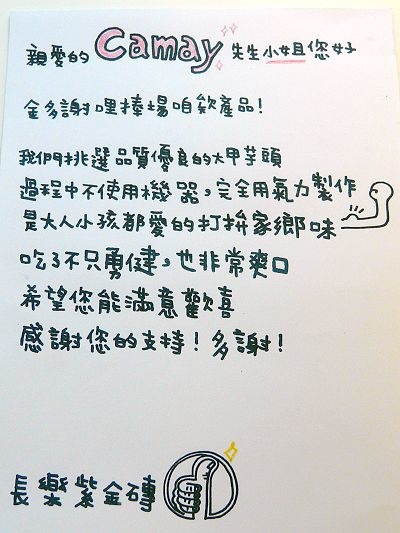 親愛的 Camay 先生小姐您好
金多謝哩捧場咱欸產品!
我們挑選品質優良的大甲芋頭
過程中不使用機器,完全用氣力製作
是大人小孩都愛的打拚家鄉味
吃了不只勇健,也非常爽口
希望您能滿意歡喜
感謝您的支持!多謝!
長樂紫金磚